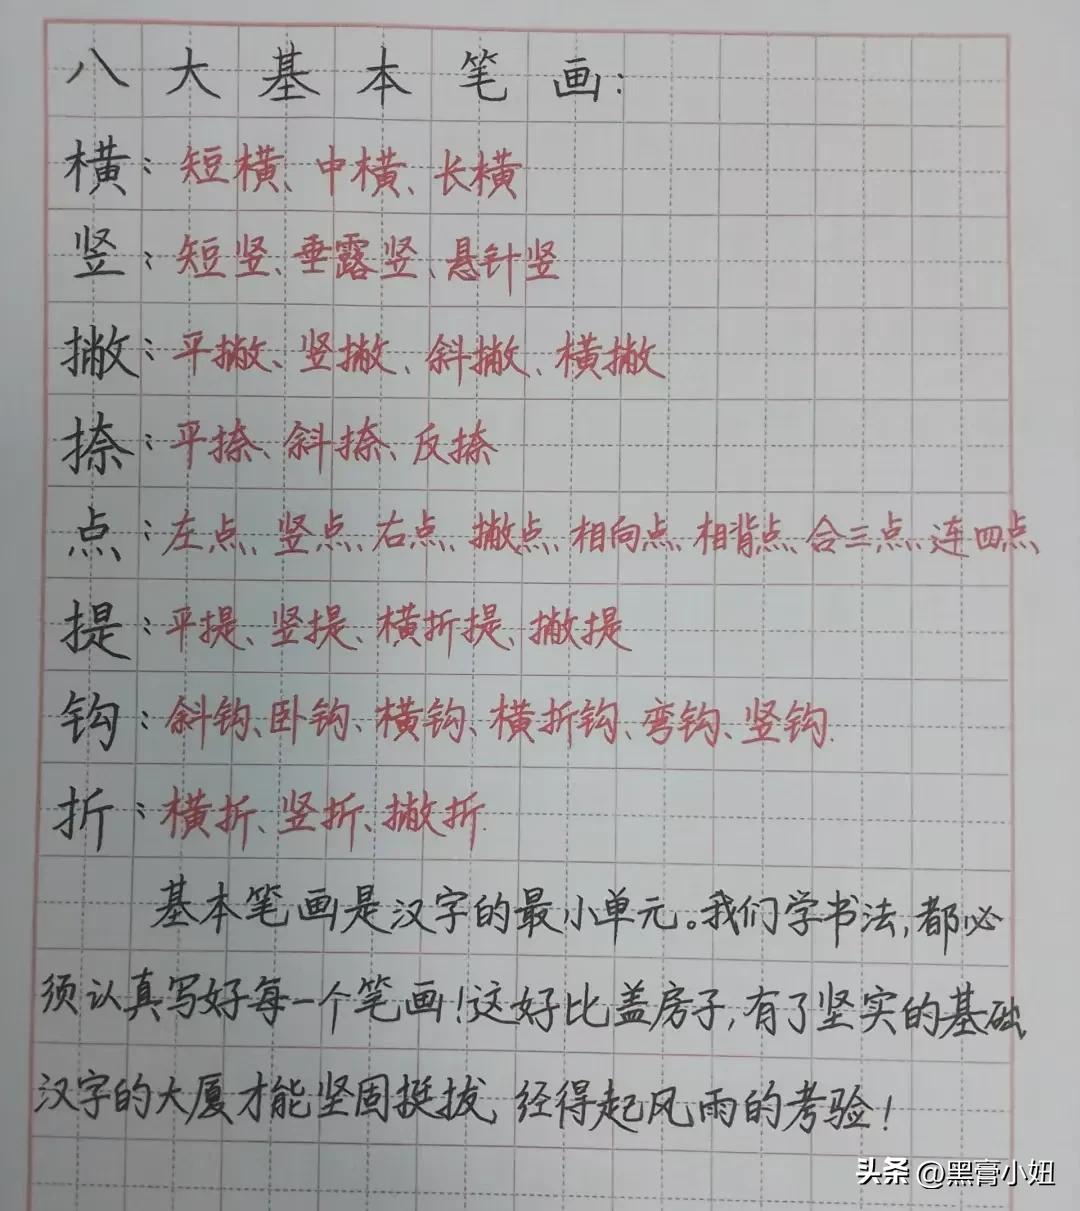 八大基本笔画:
横:短横、中横、长横
竖:短竖、垂露竖、悬针竖
撇:平撇、竖撇、斜撇、横撇
捺:平捺、斜捺、反捺
点:左点、竖点、右点、撇点、相向点、相背点、合三点、连四点
提:平提、竖提、横折提、撇提
钩:斜钩、卧钩、横钩、横折钩、弯钩、竖钩.
折:横折、竖折、撇折.
基本笔画是汉字的最小单元。我们学书法,都必
须认真写好每一个笔画!这好比盖房子,有了坚实的基础
汉字的大厦才能坚固挺拔,经得起风雨的考验!
头条 @黑膏小妞